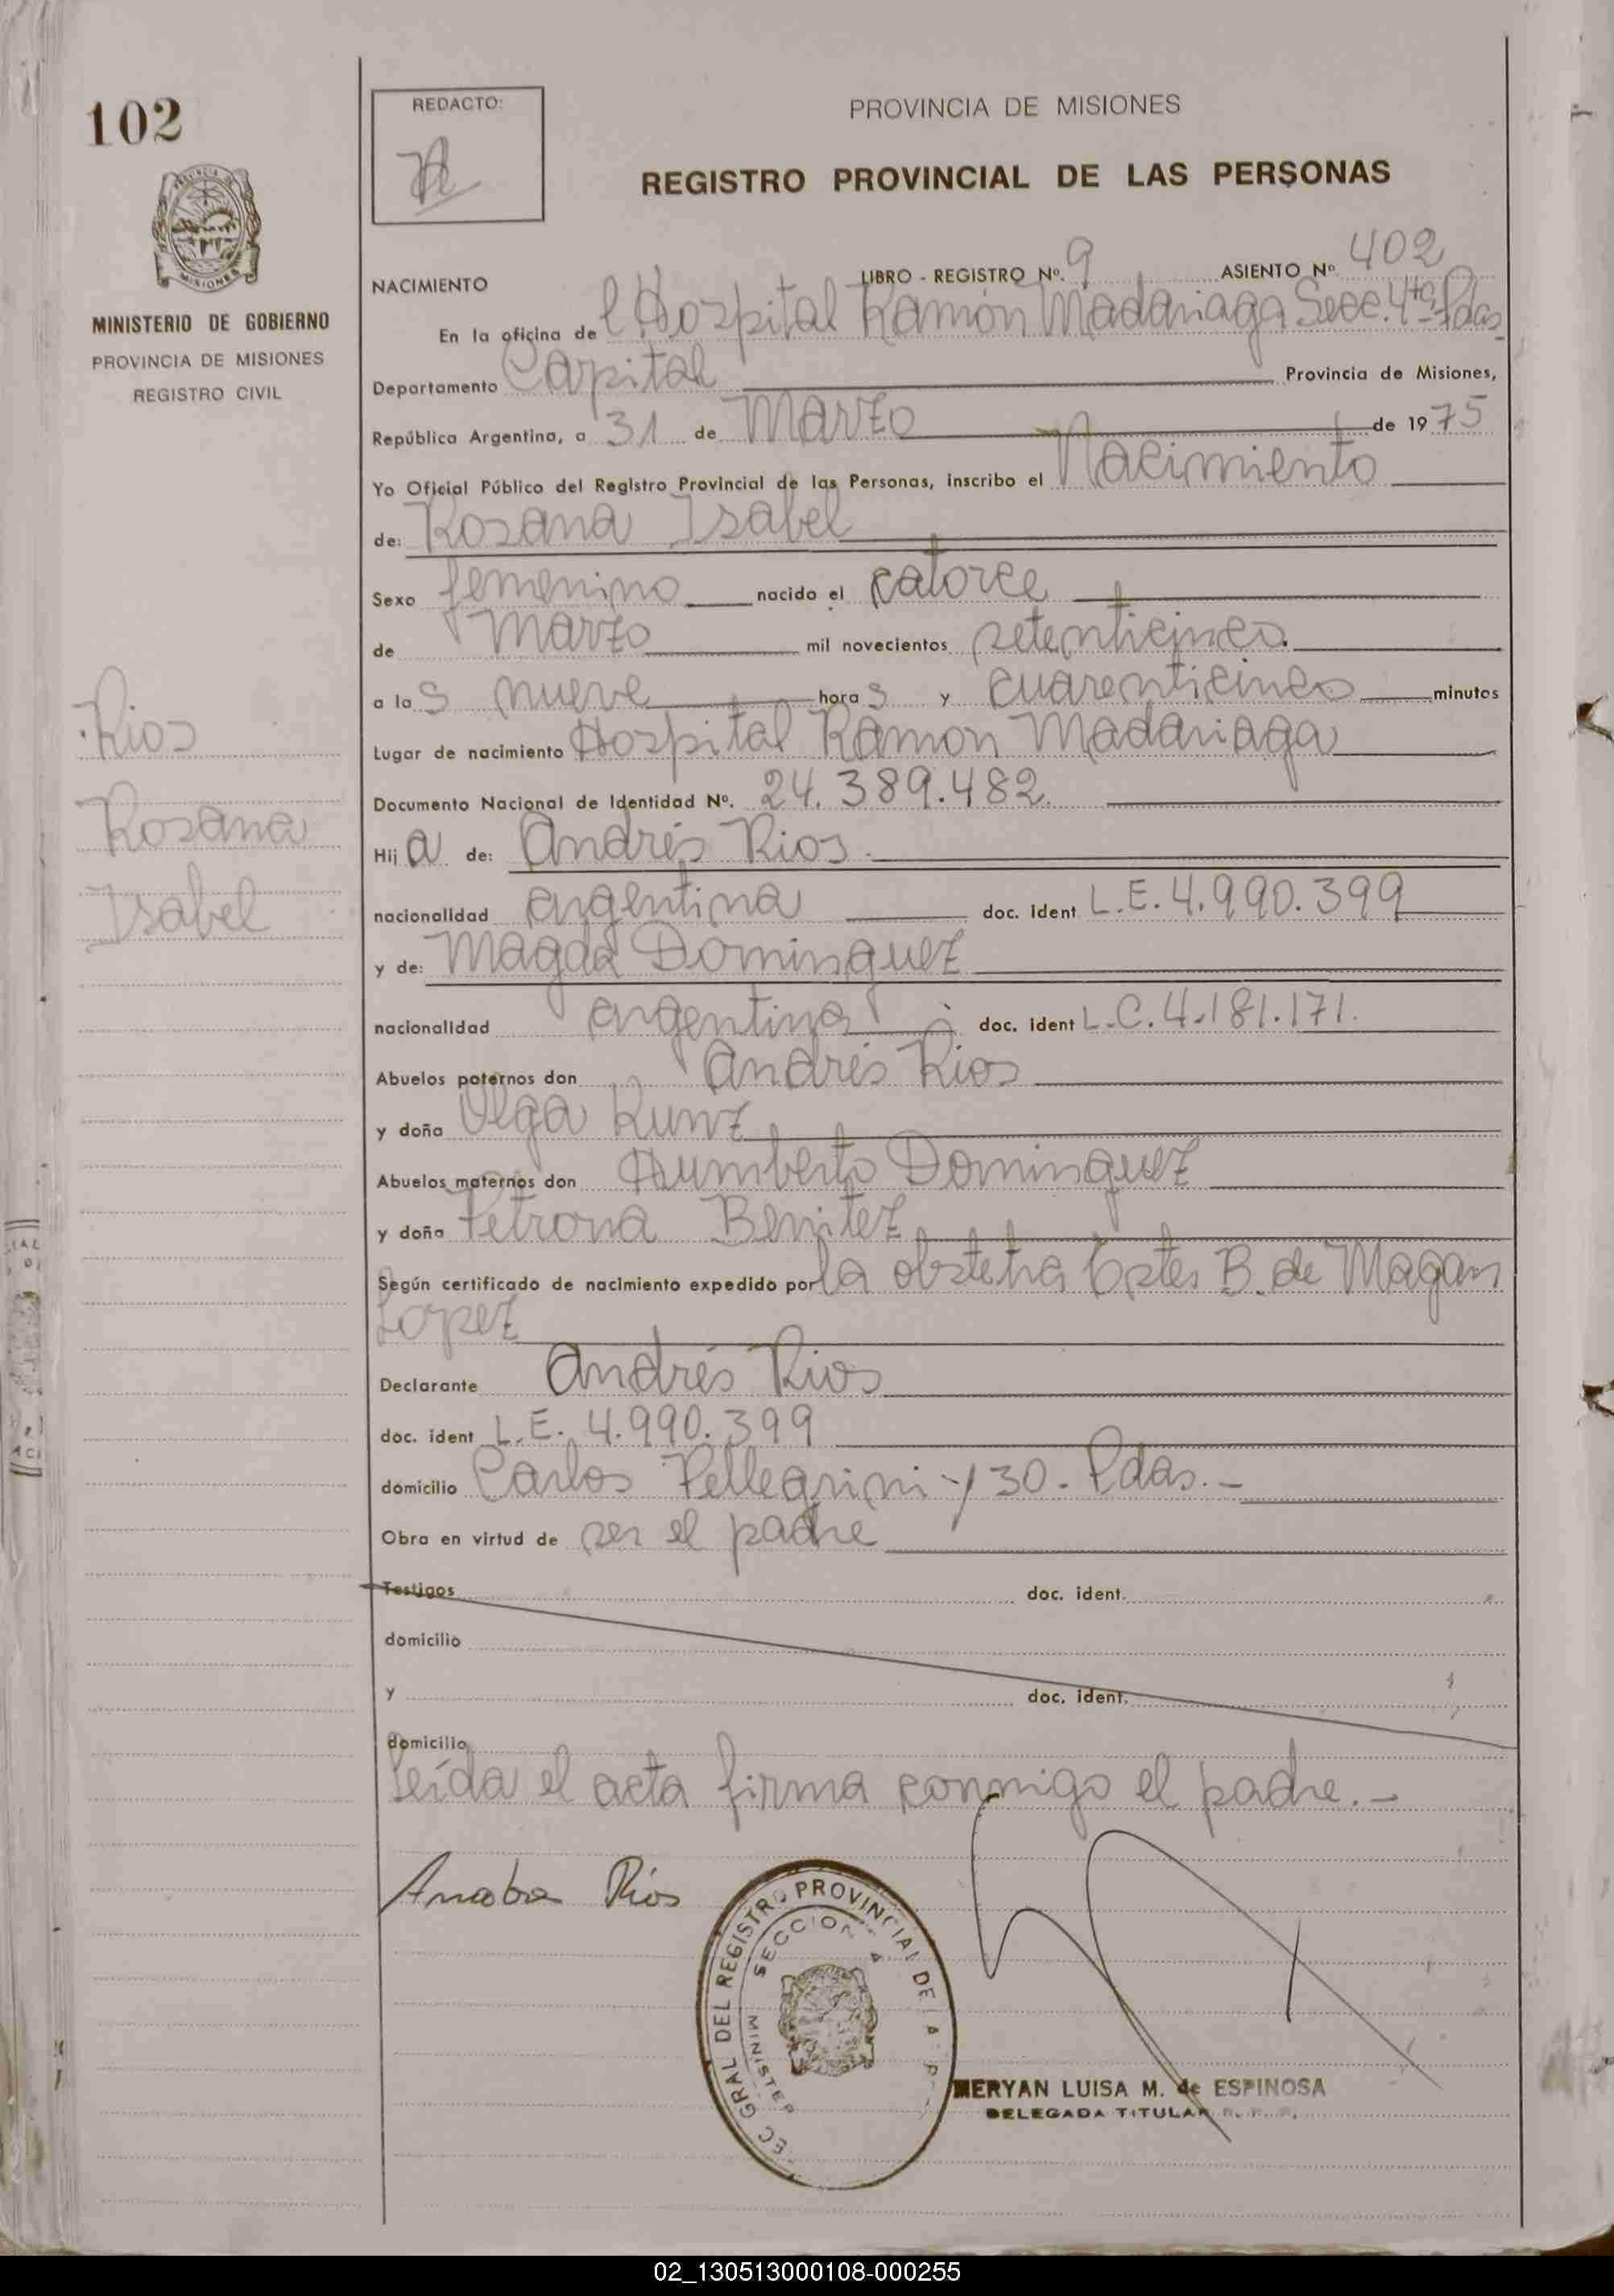 102
REDACTO:
PROVINCIA DE MISIONES
REGISTRO PROVINCIAL DE LAS PERSONAS
MINISTERIO DE GOBIERNO
PROVINCIA DE MISIONES
REGISTRO CIVIL
NACIMIENTO
LIBRO - REGISTRO Nº. 9 ASIENTO Nº 402
En la oficina de l Hospital Ramón Madariaga Secc. 4ta Pdas
Departamento Capital Provincia de Misiones,
República Argentina, a 31 de Marzo de 1975
Yo Oficial Público del Registro Provincial de las Personas, inscribo el Nacimiento
de: Rosana Isabel
Sexo femenino nacido el catorce
de Marzo mil novecientos setenticinco.
a las nueve horas y cuarenticinco minutos
Lugar de nacimiento Hospital Ramon Madariaga
Documento Nacional de Identidad Nº. 24.389.482.
Hija de: Andrés Rios
nacionalidad argentina doc. ident L.E. 4.990.399
y de: Magda Dominguez
nacionalidad argentina doc. ident L.C. 4.181.171.
Abuelos paternos don Andrés Rios
y doña Olga Kunz
Abuelos maternos don Humberto Dominguez
y doña Petrona Benitez
Según certificado de nacimiento expedido por la obstetra B. de Magan
Lopez
Declarante Andrés Rios
doc. ident L.E. 4.990.399
domicilio Carlos Pellegrini y 30 - Pdas. -
Obra en virtud de ser el padre
Testigos doc. ident.
domicilio
y doc. ident.
domicilio
Leída el acta firma conmigo el padre. -
Rios
Rosana
Isabel
Rios
EC GRAL DEL REGISTRO PROVINCIAL DE LA P
SECCION 4
MINISTER
MERYAN LUISA M. de ESPINOSA
DELEGADA TITULAR R. P. P.
02_130513000108-000255